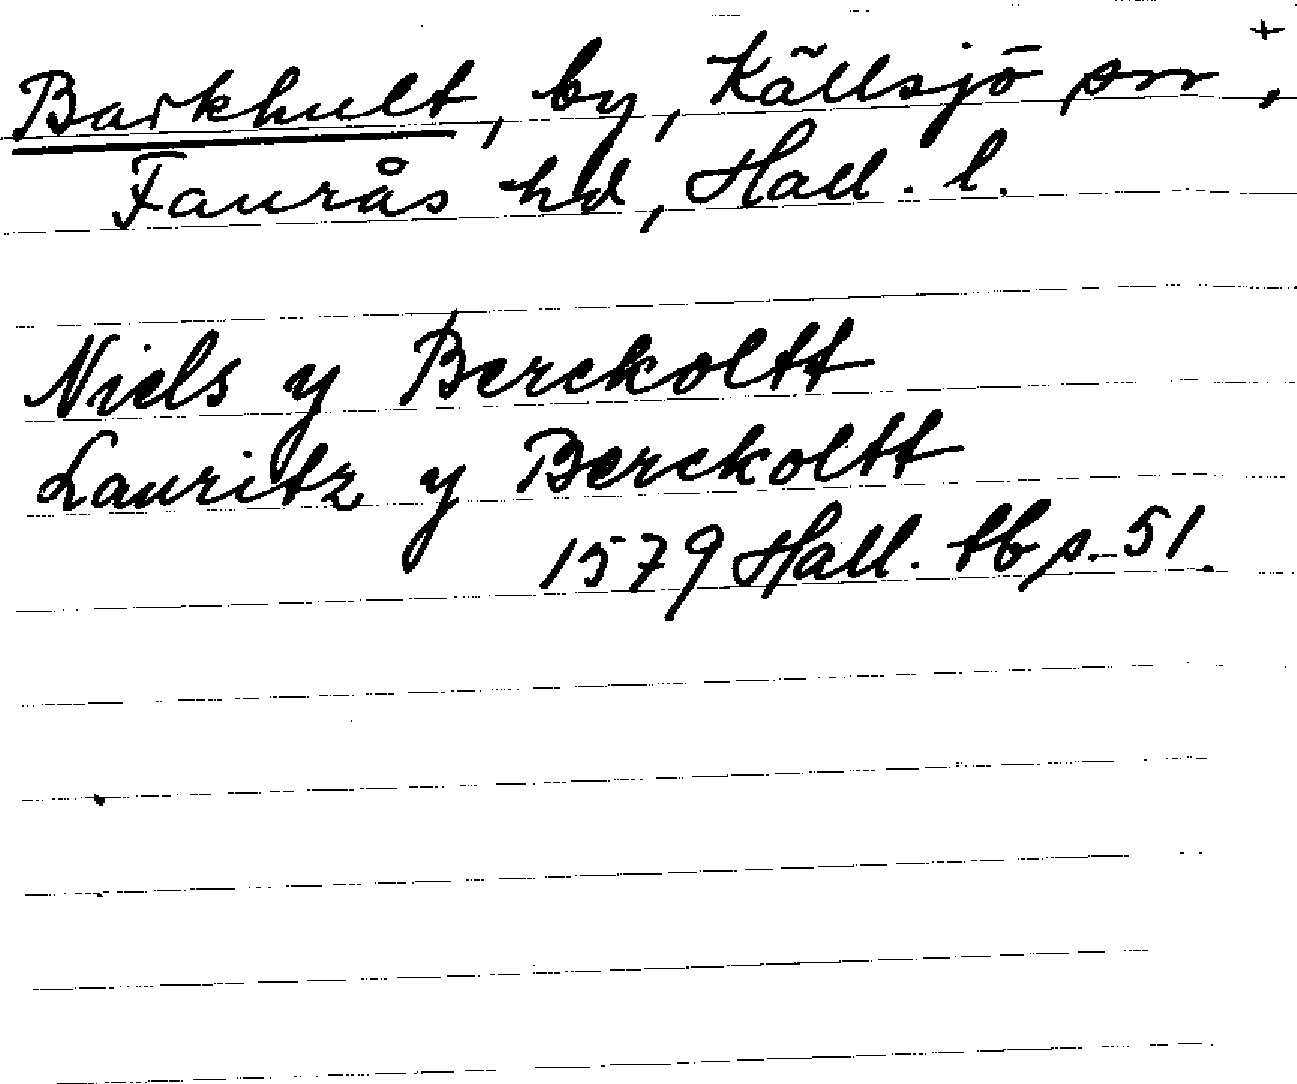 +
Barkhult, by, Källsjö sn,
Faurås hd, Hall. l.
Niels y Berckoltt
Lauritz y Berckoltt
1579 Hall. tb s. 51.